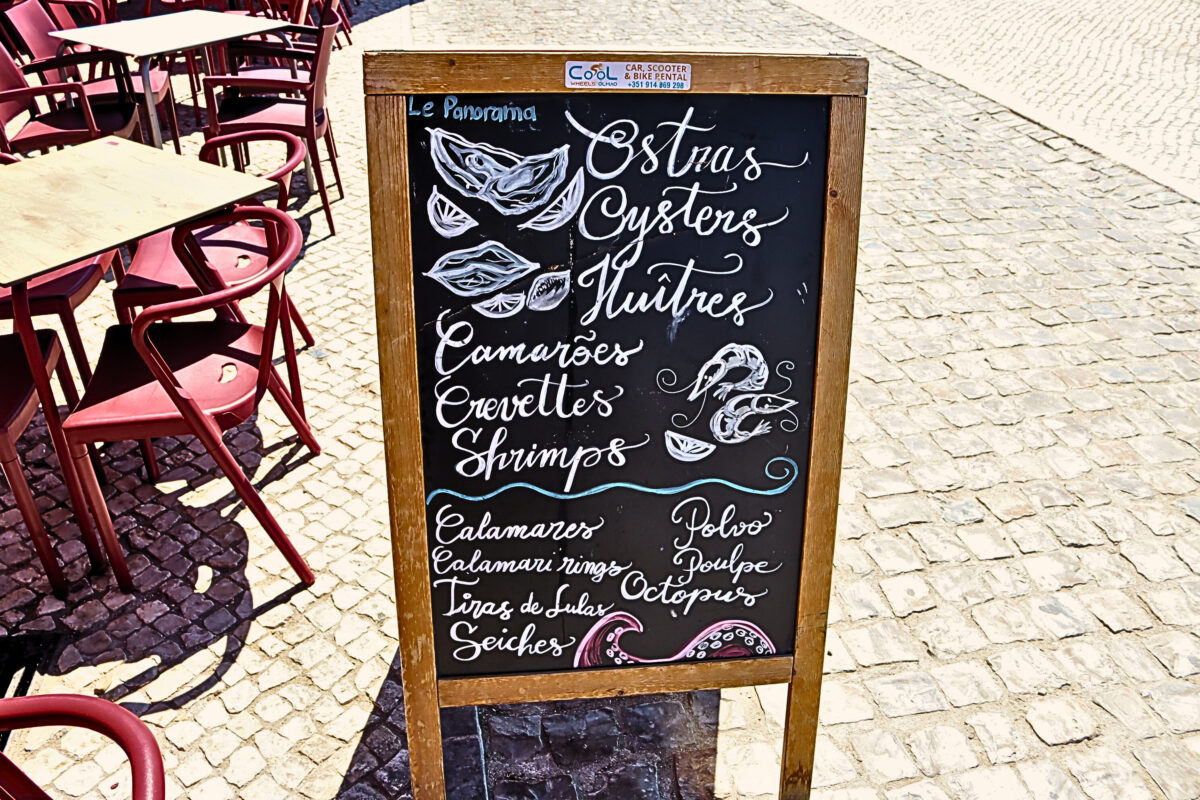 COOL
WHEELS OLHAO
CAR, SCOOTER
& BIKE RENTAL
+351 914 869 298
Le Panorama
Ostras
Oysters
Huîtres
Camarões
Crevettes
Shrimps
Calamares
Calamari rings
Tiras de Lulas
Seiches
Polvo
Poulpe
Octopus